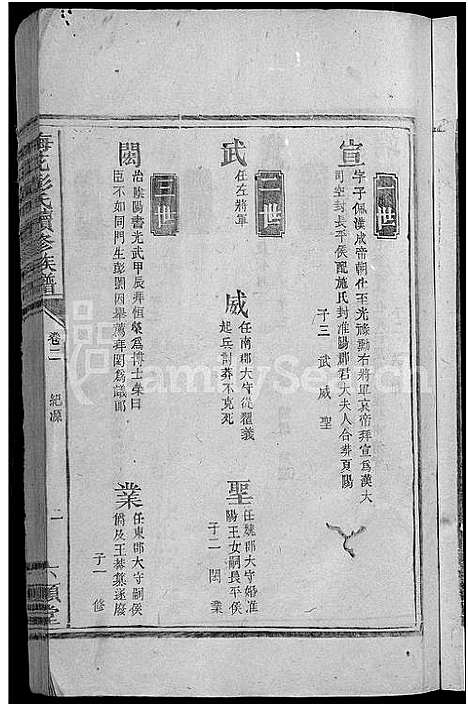 一世
宣
字子佩漢成帝朝仕至光祿勳右將軍哀帝拜宣爲漢大
司空封長平侯配施氏封淮陽郡君大夫人合葬頁陽
子三 武 威 聖
二世
武
任左將軍
威
任南郡大守從翟義
起兵討莽不克死
聖
任魏郡大守婚淮
陽王女嗣長平侯
子二 閎 業
三世
閎
治歐陽書光武甲辰拜恒榮爲博士榮曰
臣不如同門生彭閎因舉薦拜閎爲議郎
業
任東郡大守嗣侯
爵及王莽篡遂廢
子一 修
梅花彭氏續修族譜
卷二
紀源
二
六順堂
FamilySearch